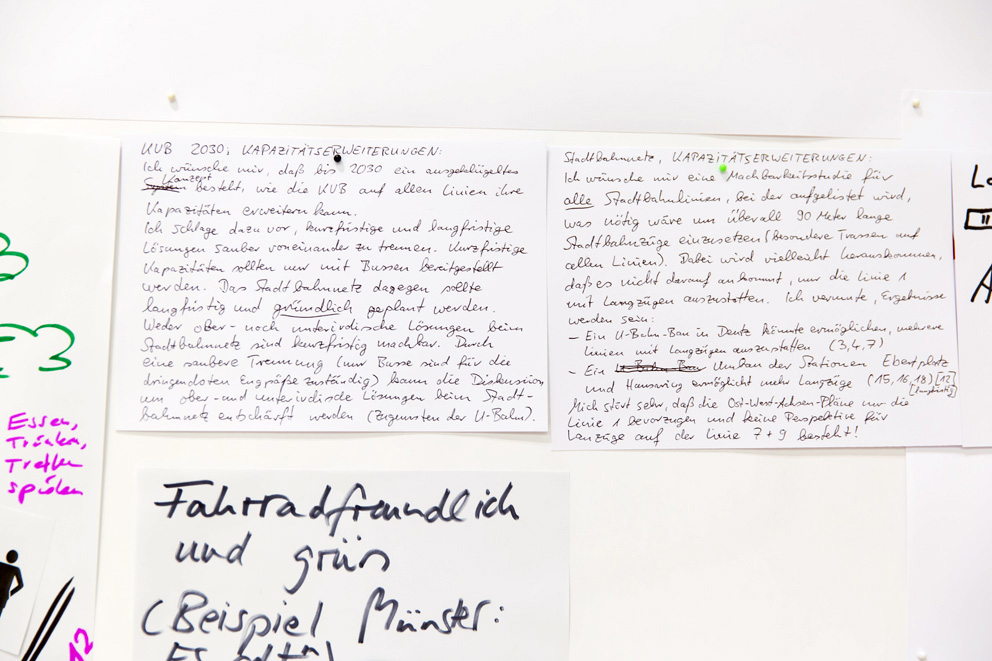 KVB 2030, KAPAZITÄTSERWEITERUNGEN:
Ich wünsche mir, daß bis 2030 ein ausgeklügeltes
Konzept
besteht, wie die KVB auf allen Linien ihre
Kapazitäten erweitern kann.
Ich schlage dazu vor, kurzfristige und langfristige
Lösungen sauber voneinander zu trennen. Kurzfristige
Kapazitäten sollten nur mit Bussen bereitgestellt
werden. Das Stadtbahnetz dagegen sollte
langfristig und gründlich geplant werden.
Weder ober- noch unterirdische Lösungen beim
Stadtbahnetz sind kurzfristig machbar. Durch
eine saubere Trennung (nur Busse sind für die
dringendsten Engpäße zuständig) kann die Diskussion
um ober- und unterirdische Lösungen beim Stadt-
bahnnetz entschärft werden (zugunsten der U-Bahn).
Stadtbahnnetz, KAPAZITÄTSERWEITERUNGEN:
Ich wünsche mir eine Machbarkeitsstudie für
alle Stadtbahnlinien, bei der aufgelistet wird,
was nötig wäre um überall 90 Meter lange
Stadtbahnzüge einzusetzen (besondere Trassen auf
allen Linien). Dabei wird vielleicht herauskommen,
daß es nicht darauf ankommt, nur die Linie 1
mit Langzügen auszustatten. Ich vermute, Ergebnisse
werden sein:
- Ein U-Bahn-Bau in Deutz könnte ermöglichen, mehrere
Linien mit Langzügen auszustatten (3,4,7)
- Ein Umbau der Stationen Ebertplatz
und Hansaring ermöglicht mehr Langzüge (15,16,18) [12]
[langfristig]
Mich stört sehr, daß die Ost-West-Achsen-Pläne nur die
Linie 1 bevorzugen und keine Perspektive für
Langzüge auf der Linie 7+9 besteht!
Essen,
Trinken,
Treffen
spielen
Fahrradfreundlich
und grün
(Beispiel Münster: